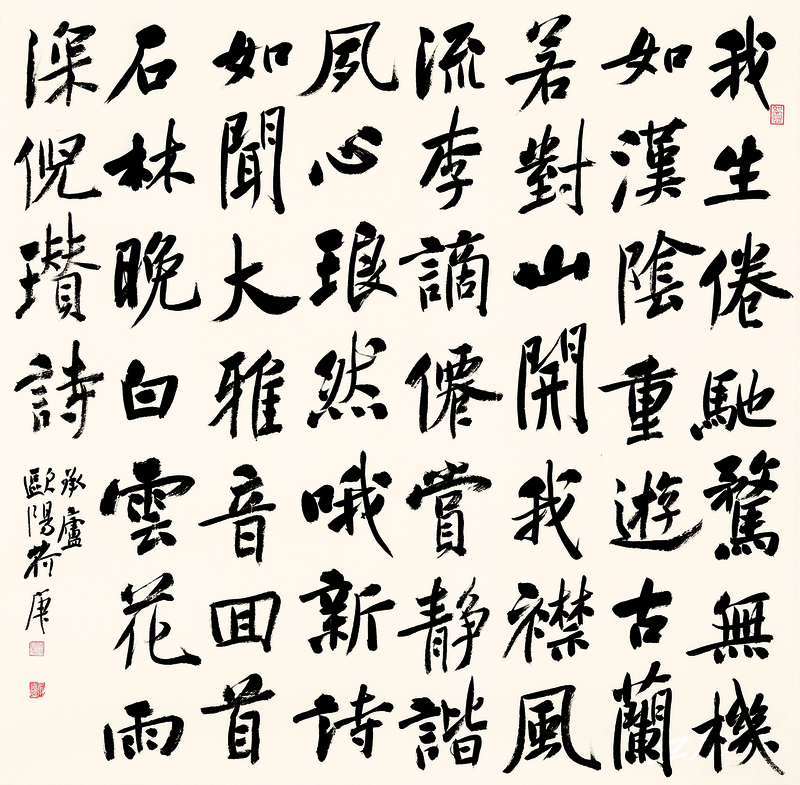 我生倦馳騖無機
如漢陰重遊古蘭
若對山開我襟風
流李謫僊賞静諧
夙心琅然哦新詩
如聞大雅音回首
石林晚白雲花雨
深倪瓚詩
承廬
歐陽荷庚